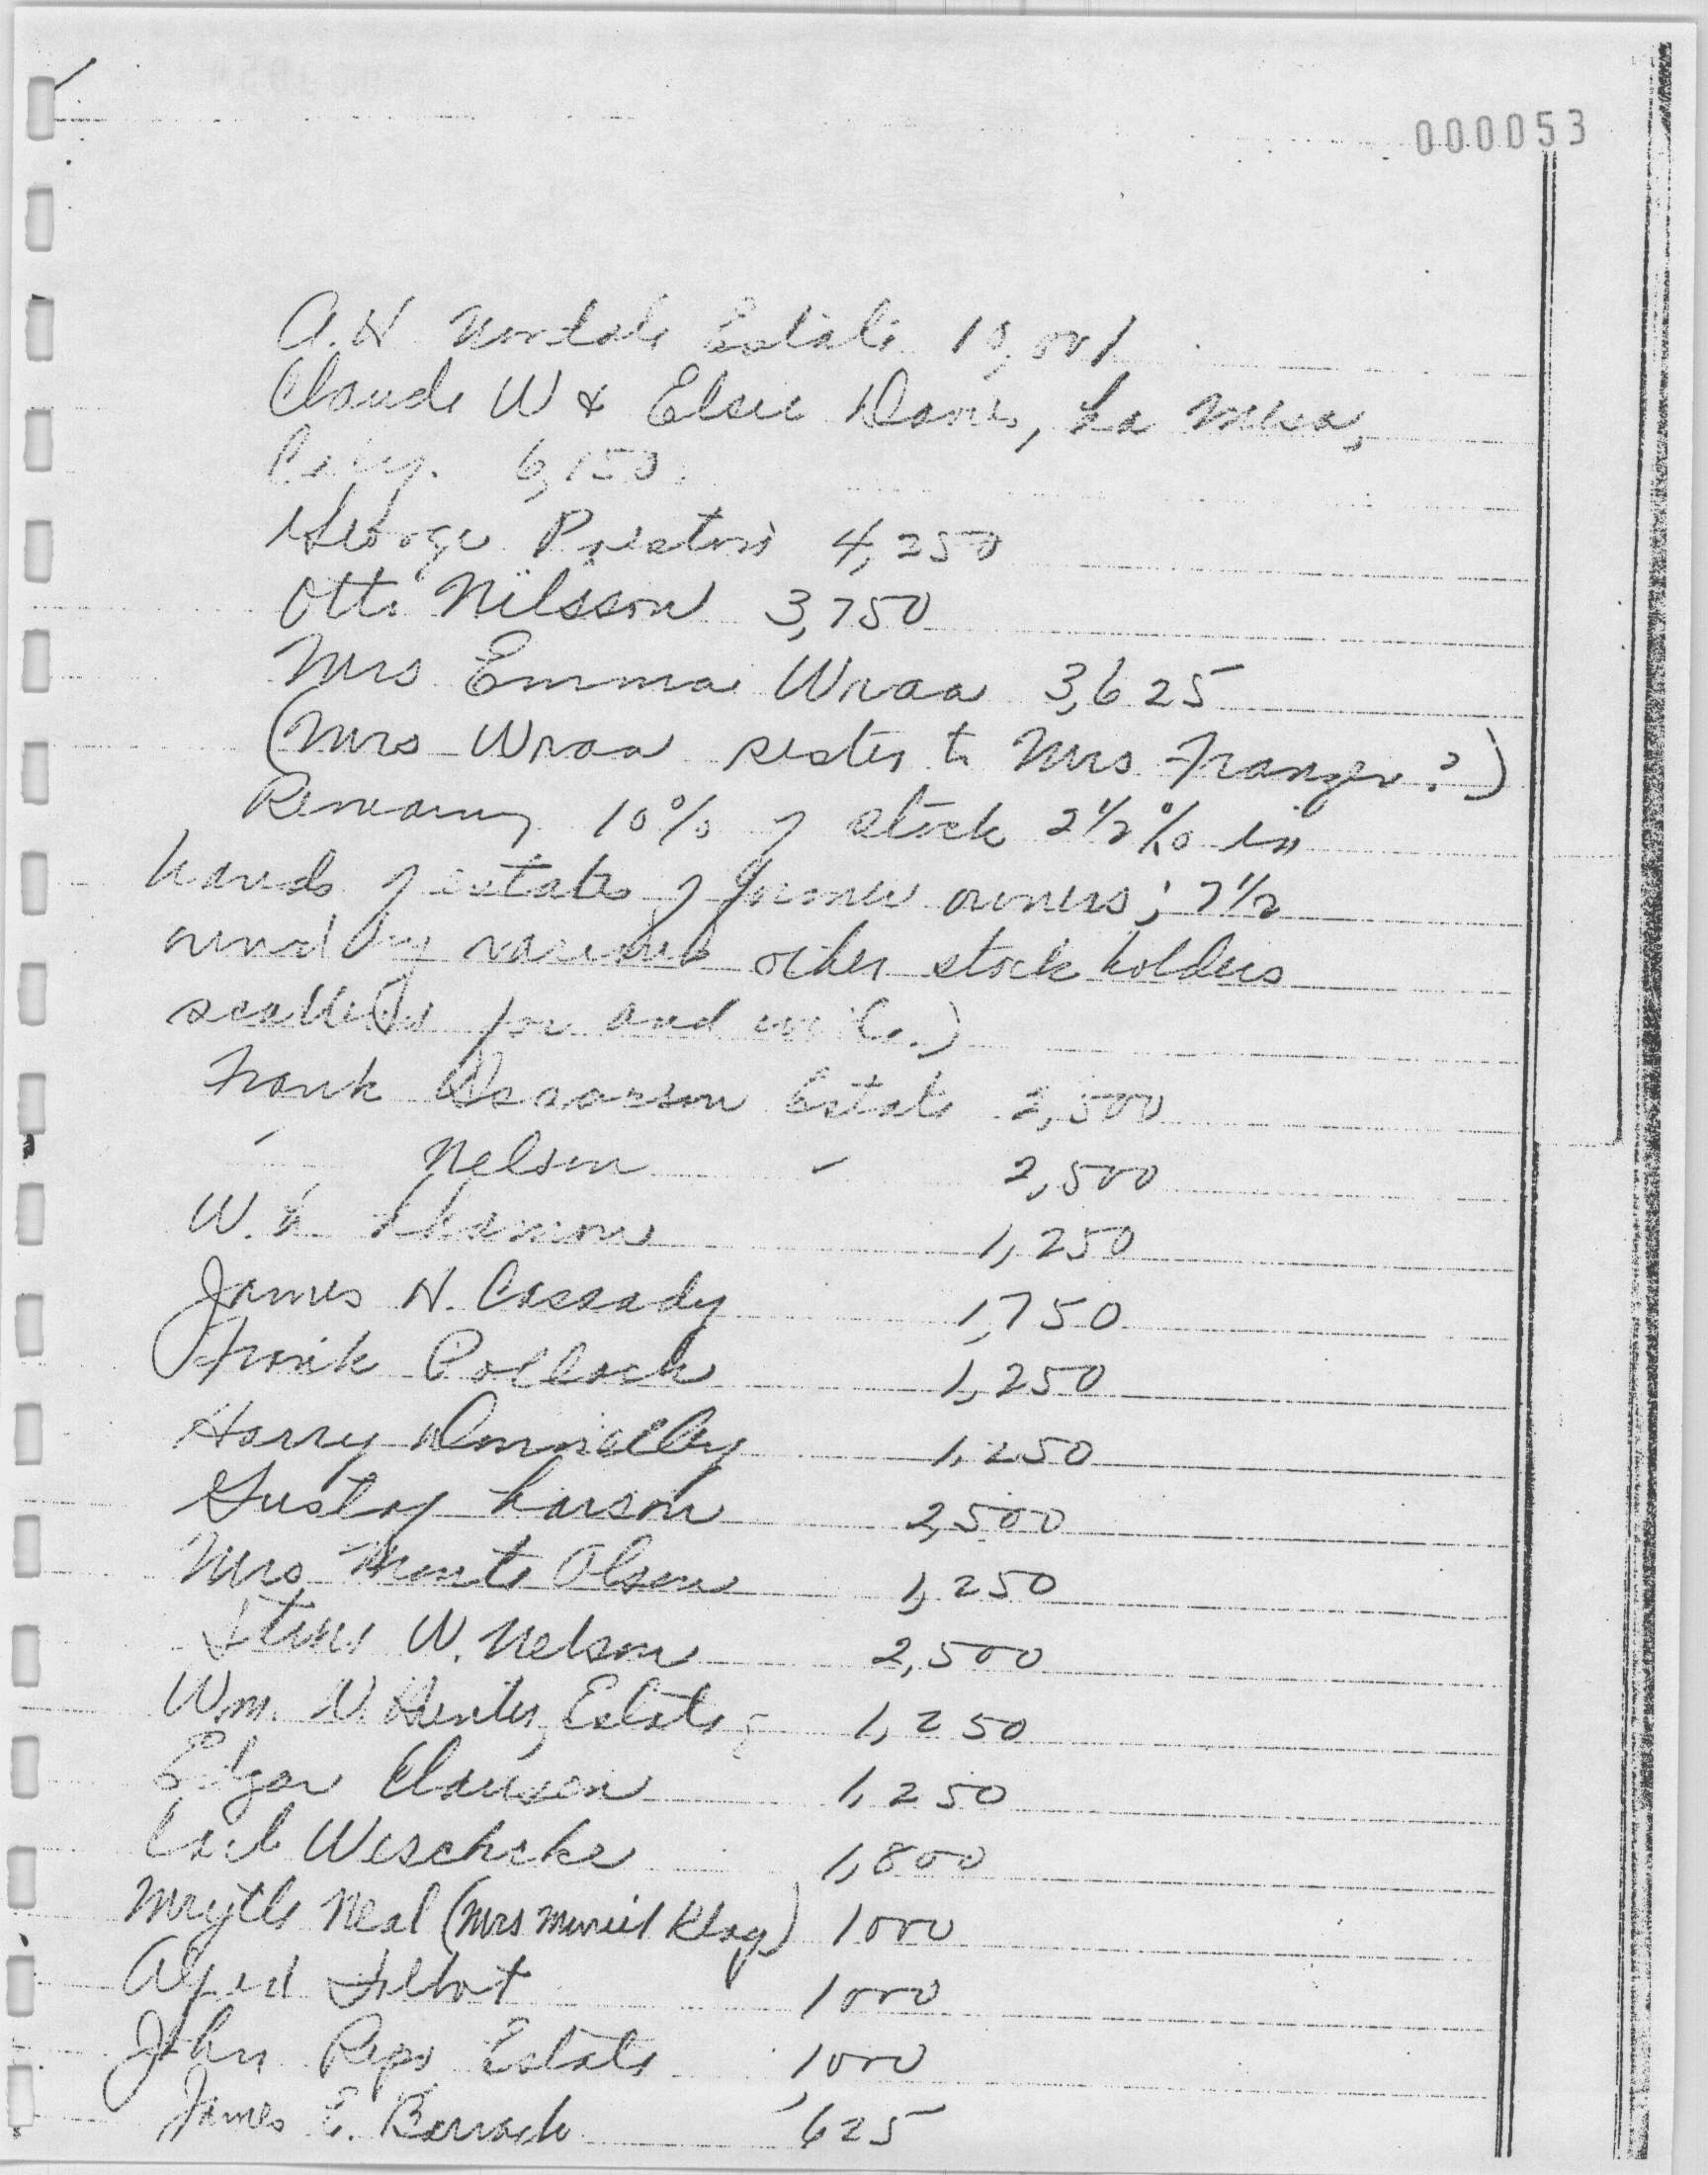 000053
A.H Nordale Estate
Claude W & Elsie Davis, La Mesa,
6,150.
George Preston 4,250
Otto Nilsson 3,750
Mrs Emma Wraa 3,625
(Mrs Wraa sister to Mrs Franzen?)
Remaing 10% of stock 2½% in
hands of estates of former owners; 7½
owned by various other stock holders
and wide.)
Frank Isaacson Estate 2,500
" Nelson " 2,500
W. L. 1,250
James H. Cassady 1,750
Frank Pollack 1,250
Harry Donnelley 1,250
Gustaf Larson 2,500
Mrs Monte Olson 1,250
W. Nelson 2,500
Wm. N. Hunter, Estate, 1,250
Edgar Clausen 1,250
Carl Weschcke 1,800
Mrytle Neal (Mrs Muriel Klag) 1000
Talbot 1000
John Estate 1000
James E. Barrack 625